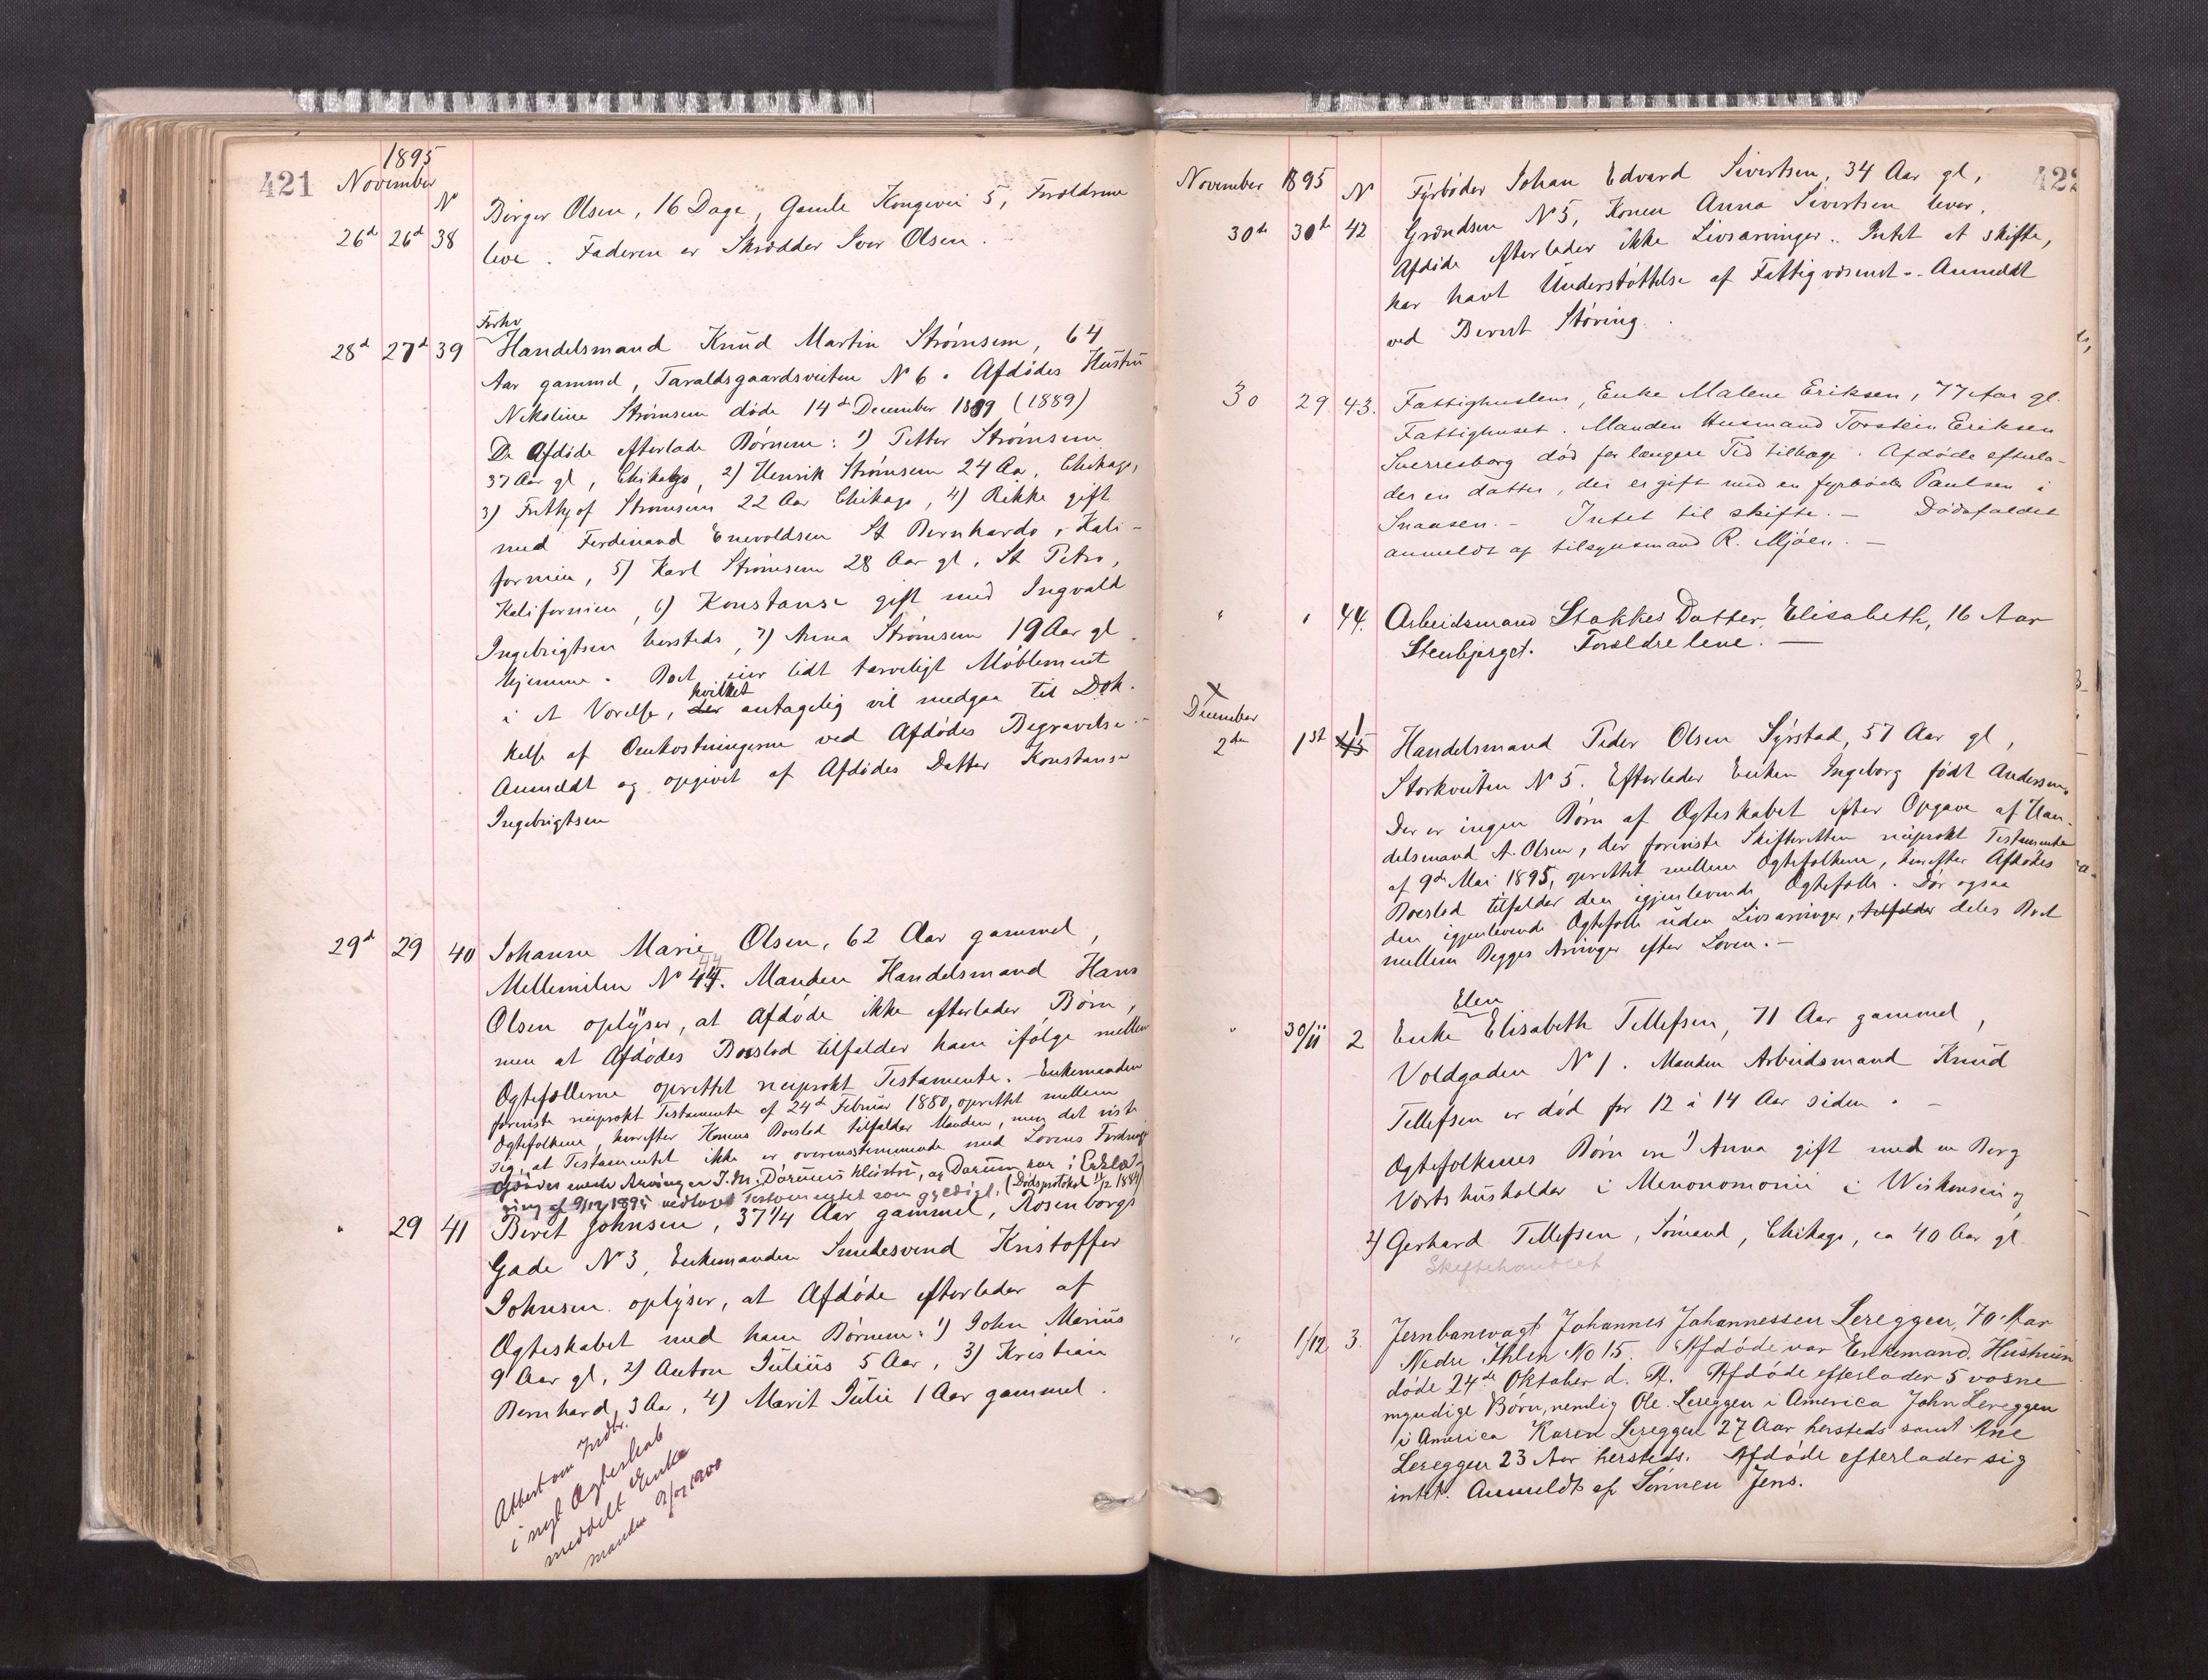 421
1895
November
N
26d 26d 38 Birger Olsen, 16 Dage, Gamle Kongevei 5, Forældrene
leve. Faderen er Skrædder Iver Olsen.
Forhv
28d 27d 39 Handelsmand Knud Martin Strømsem, 64
Aar gammel, Taraldsgaardsveiten N 6. Afdødes Hustru
Nikoline Strømsem døde 14de December 1889 (1889)
De Afdøde efterlade Børnene: 1) Petter Strømsem
37 Aar gl, Chikago, 2) Henrik Strømsem 24 Aa, Chikago,
3) Frithjof Strømsem 22 Aar Chikago, 4) Rikke gift
med Ferdinand Enevoldsen St Bernhardo, Kali-
fornien, 5) Karl Strømsem 28 Aar gl, St Petro,
Kalifornien, 6) Konstanse gift med Ingvald
Ingebrigtsen hersteds, 7) Anna Strømsem 19 Aar gl
hjemme. Boet eier lidt tarveligt Møblement
i et Værelse, der hvilket antagelig vil medgaa til Dæk-
kelse af Omkostningerne ved Afdødes Begravelse.-
Anmeldt og opgivet af Afdødes Datter Konstanse
Ingebrigtsen
29d 29 40 Johanne Marie Olsen, 62 Aar gammel,
Mellemilen N 44. 44 Manden Handelsmand Hans
Olsen oplyser, at Afdøde ikke efterlader Børn,
men at Afdødes Boeslod tilfalder ham ifølge mellem
Ægtefællerne oprettet reciprokt Testamente. - Enkemanden
foreviste reciprokt Testamente af 24de Februar 1880, oprettet mellem
Ægtefolkene, hvorefter Konens Boeslod tilfalder Manden, men det viste
sig, at Testamentet ikke er overensstemmende med Lovens Fordringer
Arvinger J. M. Dørums Hustru, og Dørum har i Erklæ-
ring af 9/12 1895 vedtaget Testamentet som gyldigt. (Dødsprotokol 11/12 1889)
" 29 41 Berit Johnsen, 37 1/4 Aar gammel, Rosenborgs
Gade N 3, Enkemanden Smedesvend Kristoffer
Johnsen oplyser, at Afdøde efterlader af
Ægteskabet med ham Børnene: 1) John Marius
9 Aar gl, 2) Anton Julius 5 Aar, 3) Kristian
Bernhard 3 Aa, 4) Marit Julie 1 Aar gammel.
Attest om Indtr.
i nyt Ægteskab
meddelt Enke
manden 1900
422
November 1895 N
30te 30te 42 Fyrbøder Johan Edvard Sivertsen, 34 Aar gl,
Grændsen N 5, Konen Anna Sivertsen lever.
Afdøde efterlader ikke Livsarvinger.. Intet at skifte,
har havt Understøttelse af Fattigvæsenet.- Anmeldt
ved Berent Støring.
30 29 43. Fattighuslem, Enke Malene Eriksen, 77 Aar gl.
Fattighuset. Manden Husmand Torstein Eriksen
Sverresborg død for længere Tid tilbage. Afdøde efterla-
der en datter, der er gift med en fyrbøder Paulsen i
Snaasen. - Intet til skifte. - Dødsfaldet
anmeldt af tilsynsmand R. Mjøen. -
" " 44. Arbeidsmand Stakkes Datter, Elisabeth, 16 Aar
Stenbjerget. Forældre leve. -
X
December
2den 1st 45 1 Handelsmand Peder Olsen Syrstad, 57 Aar gl,
Storkveiten N 5. Efterlader Enken Ingeborg født Andersen.
Der er ingen Børn af Ægteskabet efter Opgave af Han-
delsmand A. Olsen, der foreviste Skifteretten reciprokt Testamente
af 9de Mai 1895, oprettet mellem Ægtefolkene, hvorefter Afdødes
Boeslod tilfalder den igjenlevende Ægtefælle. Dør ogsaa
den igjenlevende Ægtefælle uden Livsarvinger, tilfalder deles Boet
mellem Begges Arvinger efter Loven.-
Elen
" 30/11 2 Enke Elisabeth Tellefsen, 71 Aar gammel,
Voldgaden N 1. Manden Arbeidsmand Knud
Tellefsen er død for 12 à 14 Aar siden. -
Ægtefolkenes Børn ere 1) Anna gift med en Berg
Værtshusholder i Menonomonie i Wiskonsin og
2) Gerhard Tellefsen, Sømand, Chikago, ca 40 Aar gl
Skiftebehandlet
" 1/12 3. Jernbanevagt Johannes Johannessen Lereggen, 70 Aar
Nedre Ihlen No 15. Afdøde var Enkemand. Hustruen
døde 24de Oktober d. A. Afdøde efterlader 5 voxne
myndige Børn, nemlig Ole Lereggen i America John Lereggen
i America Karen Lereggen 27 Aar hersteds samt Ane
Lereggen 23 Aar hersteds. Afdøde efterlader sig
intet. Anmeldt af Sønnen Jens.